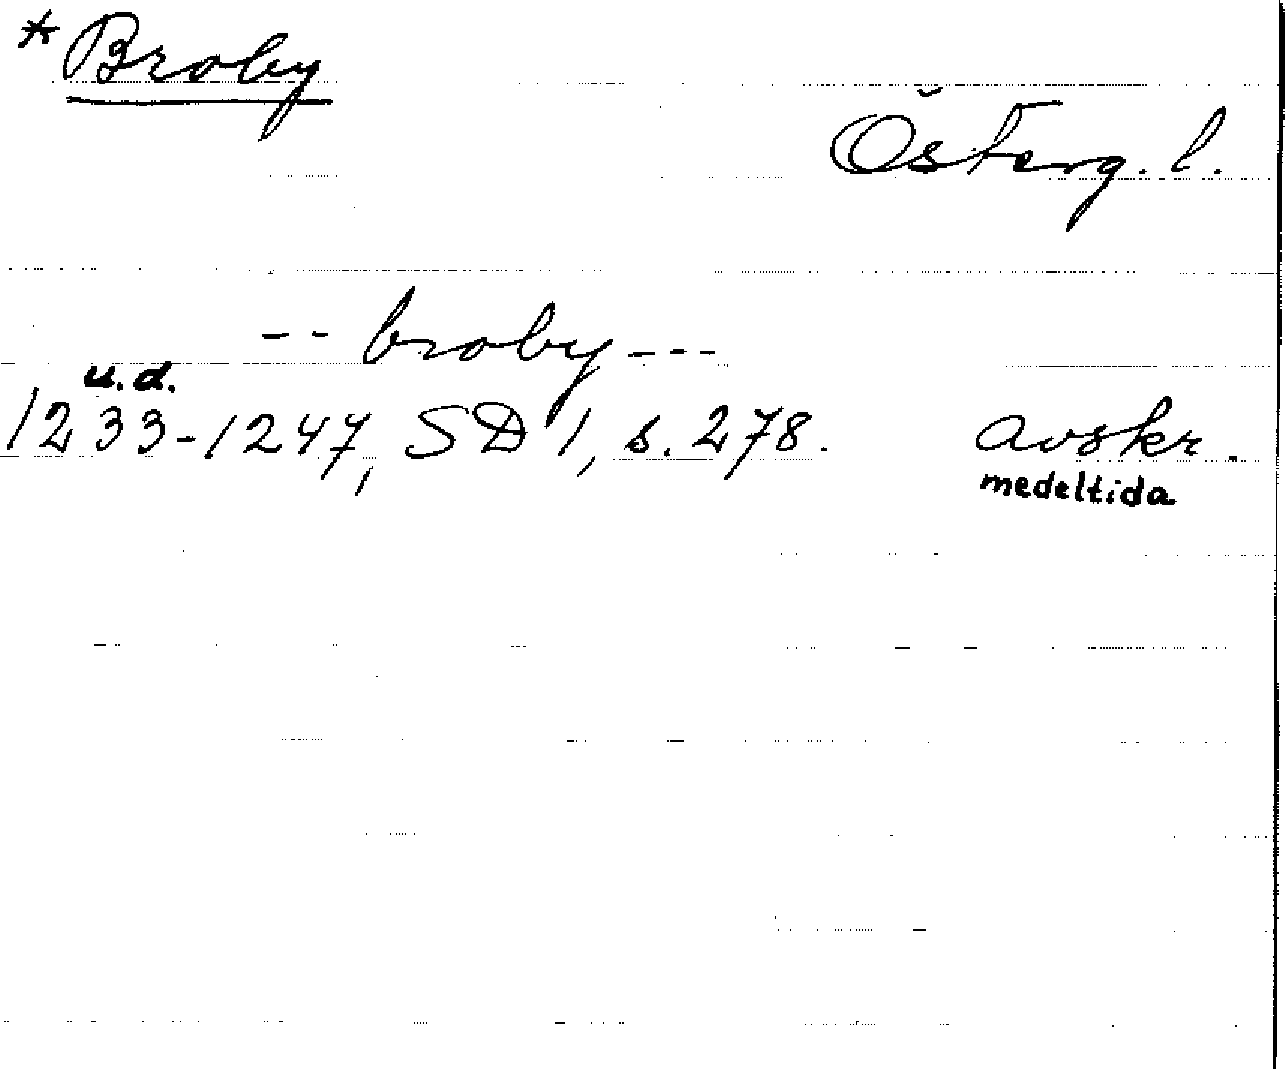 * Broby
Österg. l.
-- broby ---
u.d.
1233-1247, SD 1, s. 278. avskr.
medeltida